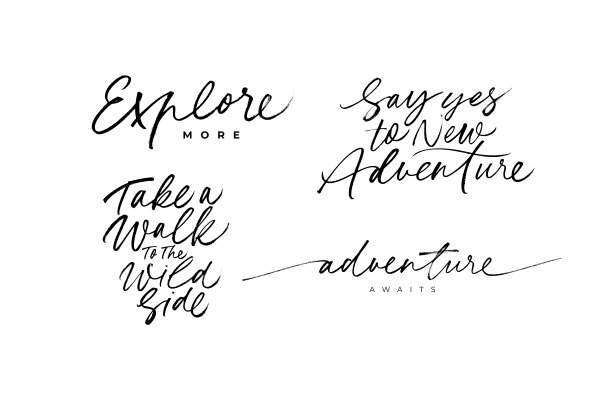 Explore
MORE
Say yes
to New
Adventure
Take a
Walk
To The
Wild
Side
adventure
AWAITS